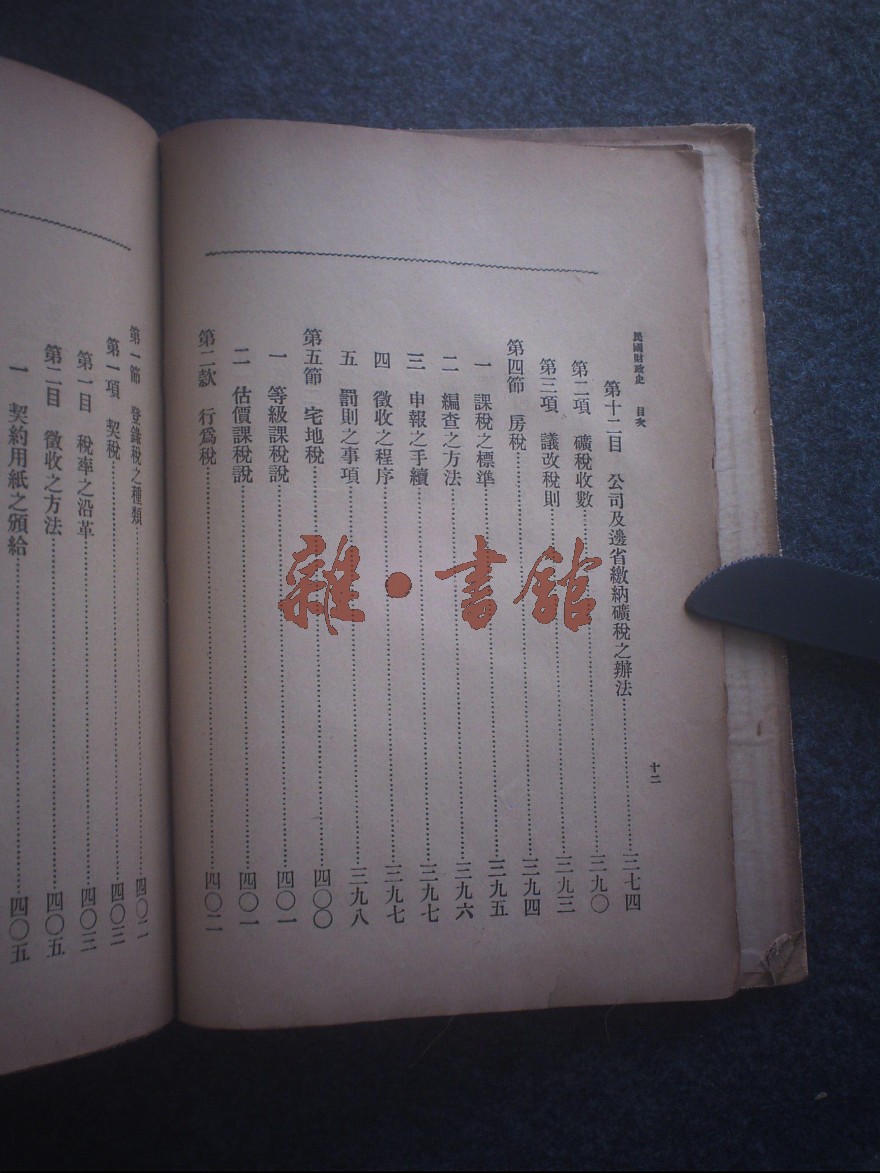 民國財政史 目次
第十二目 公司及邊省繳納礦稅之辦法……三七四
第二項 礦稅收數……三九〇
第三項 議改稅則……三九三
第四節 房稅……三九四
一 課稅之標準……三九五
二 編查之方法……三九六
三 申報之手續……三九七
四 徵收之程序……三九七
五 罰則之事項……三九八
第五節 宅地稅……四〇〇
一 等級課稅說……四〇一
二 估價課稅說……四〇一
第二款 行爲稅……四〇二
十二
第一節 登錄稅之種類……四〇二
第一項 契稅……四〇三
第一目 稅率之沿革……四〇三
第二目 徵收之方法……四〇五
一 契約用紙之頒給……四〇五
雜·書館